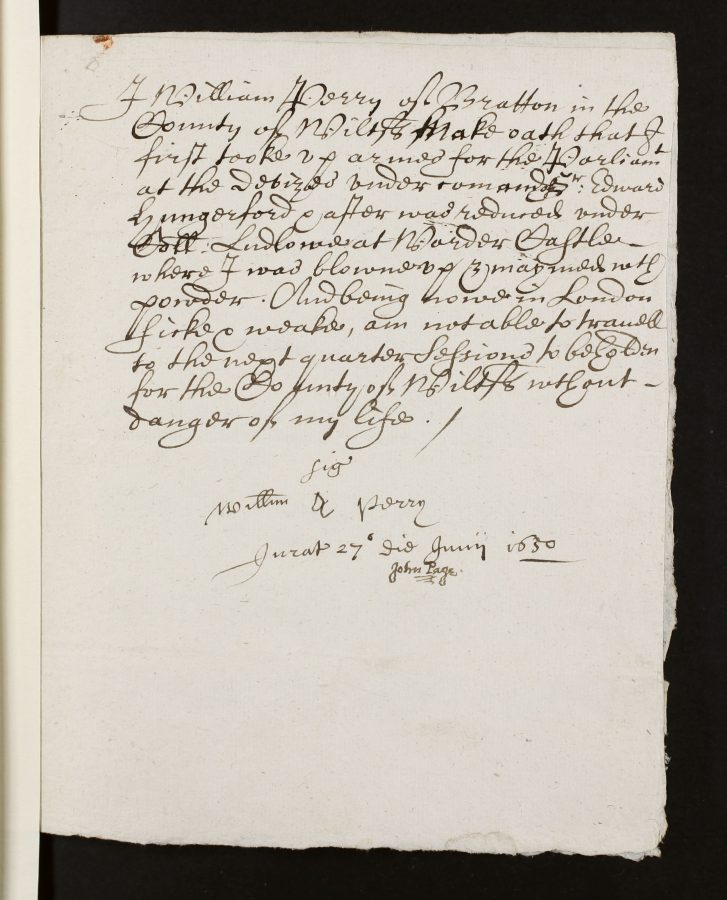 I William Perry of Bratton in the
County of Wiltss make oath that I
first tooke vp armes for the Parliamt
at the Devizes vnder comand Sr: Edward
Hungerford & after was reduced vnder
Coll: Ludlowe at Warder Castle
where I was blowne vp & maymed wth
powder. And being nowe in London
sicke & weake, am not able to travell
to the next quarter Sessions to be holden
for the County of Wiltss wthout
danger of my life.
sig
Willim Perry
Jurat 27o die Junij 1650
John Page.